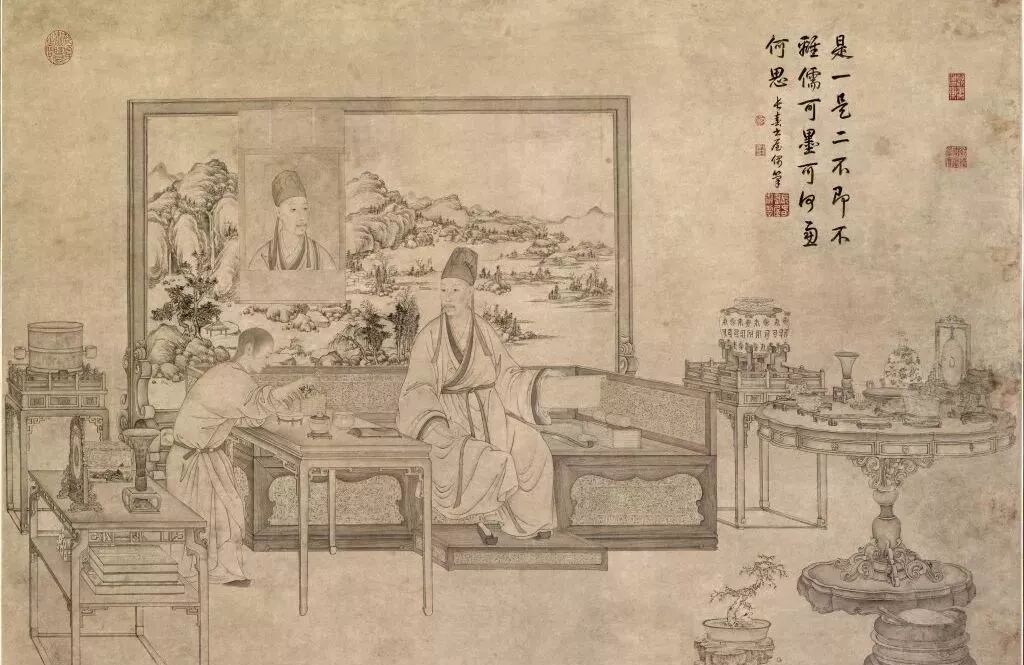 是一是二不即不
離儒可墨可何慮
何思
長春書屋偶筆